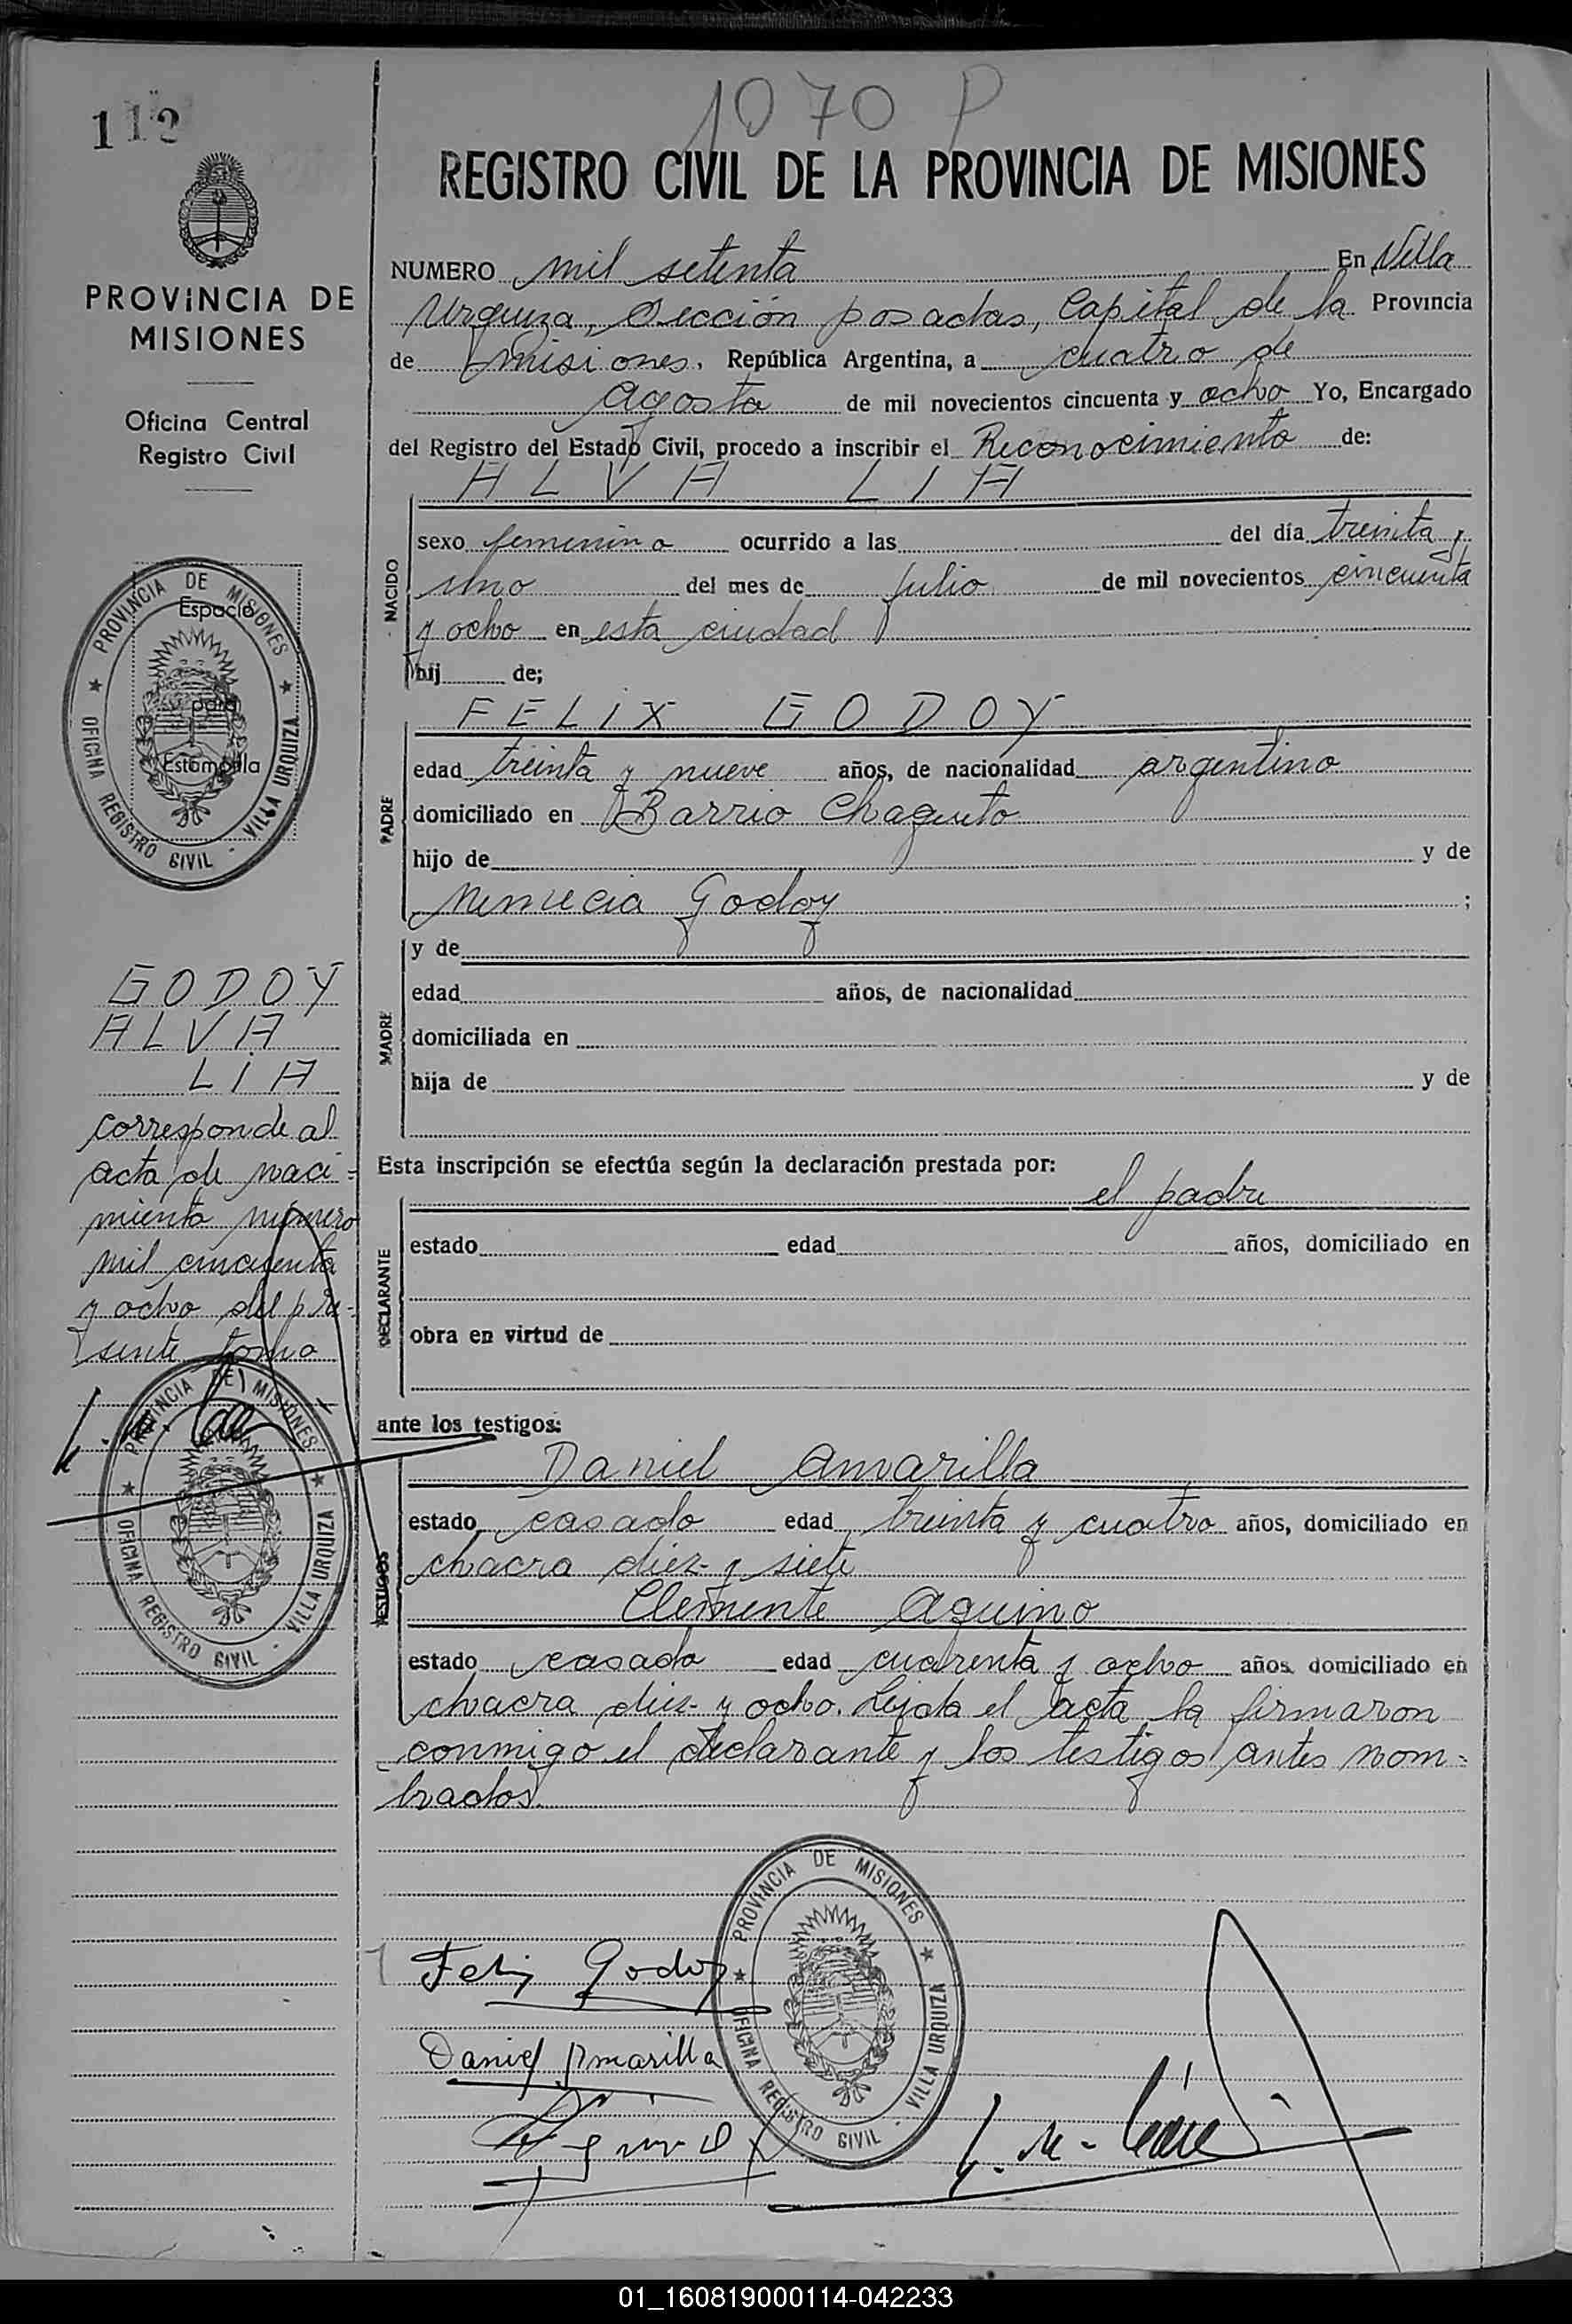 112
1070 P
REGISTRO CIVIL DE LA PROVINCIA DE MISIONES
PROVINCIA DE
MISIONES
Oficina Central
Registro Civil
NUMERO mil setenta En Villa
Urquiza, Sección posadas, Capital de la Provincia
de Misiones, República Argentina, a cuatro de
Agosto de mil novecientos cincuenta y ocho Yo, Encargado
del Registro del Estado Civil, procedo a inscribir el Reconocimiento de:
ALVA LIA
NACIDO
sexo femenino ocurrido a las del día treinta y
uno del mes de julio de mil novecientos cincuenta
y ocho en esta ciudad
hij de;
PROVINCIA DE MISIONES
OFICINA REGISTRO CIVIL - VILLA URQUIZA
Espacio
para
Estampilla
FELIX GODOY
PADRE
edad treinta y nueve años, de nacionalidad argentino
domiciliado en Barrio Chaquito
hijo de y de
Nemecia Godoy ;
MADRE
y de
edad años, de nacionalidad
domiciliada en
hija de y de
GODOY
ALVA
LIA
corresponde al
acta de naci=
miento número
mil cincuenta
y ocho del pre-
sente tomo
PROVINCIA DE MISIONES
OFICINA REGISTRO CIVIL - VILLA URQUIZA
Esta inscripción se efectúa según la declaración prestada por:
el padre
DECLARANTE
estado edad años, domiciliado en
obra en virtud de
ante los testigos:
TESTIGOS
Daniel Amarilla
estado casado edad treinta y cuatro años, domiciliado en
chacra diez y siete
Clemente Aquino
estado casado edad cuarenta y ocho años domiciliado en
chacra diez y ocho. Leída el acta la firmaron
conmigo el declarante y los testigos antes nom=
brados.
PROVINCIA DE MISIONES
OFICINA REGISTRO CIVIL - VILLA URQUIZA
Felix Godoy
Daniel Amarilla
01_160819000114-042233